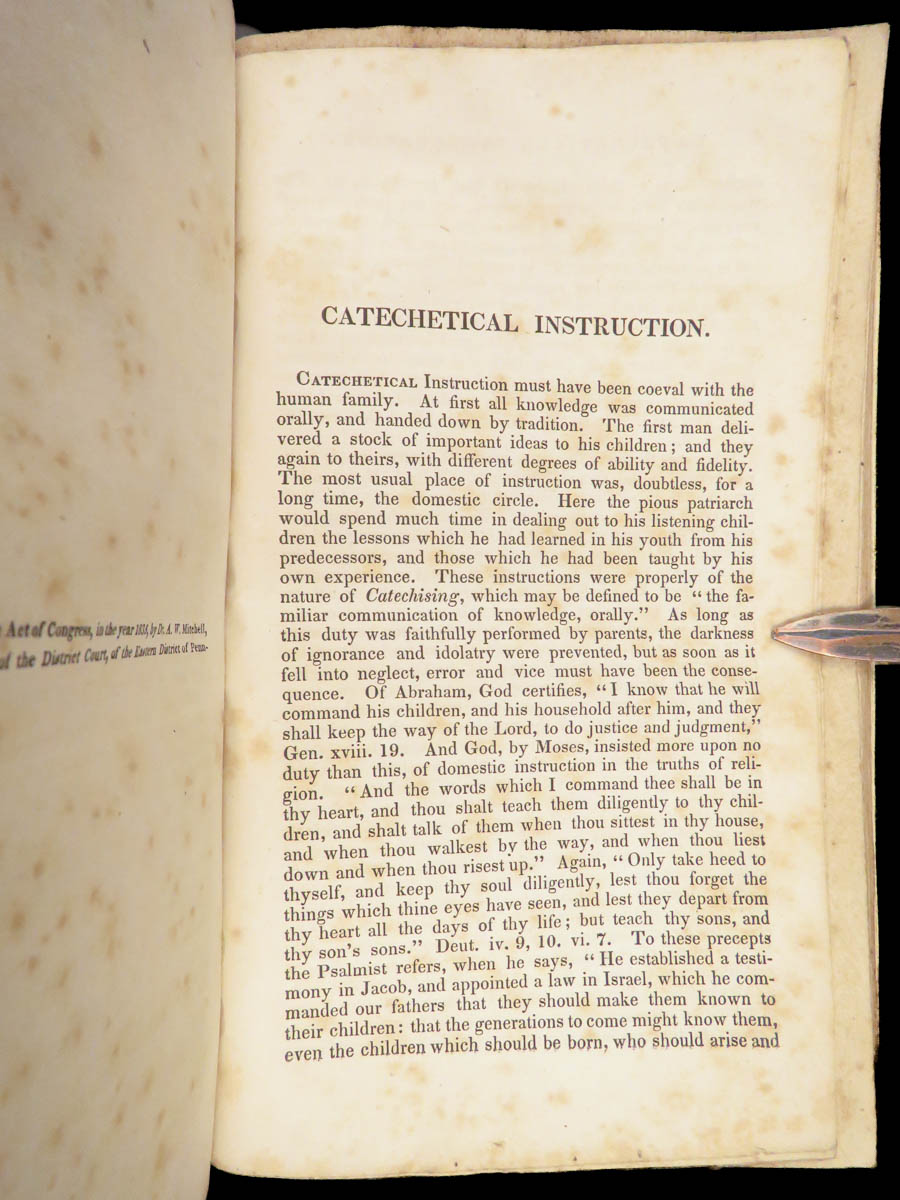 Act of Congress, in the year 1836, by Dr. A. W. Mitchell,
of the District Court, of the Eastern District of Penn-
CATECHETICAL INSTRUCTION.
Catechetical Instruction must have been coeval with the
human family. At first all knowledge was communicated
orally, and handed down by tradition. The first man deli-
vered a stock of important ideas to his children; and they
again to theirs, with different degrees of ability and fidelity.
The most usual place of instruction was, doubtless, for a
long time, the domestic circle. Here the pious patriarch
would spend much time in dealing out to his listening chil-
dren the lessons which he had learned in his youth from his
predecessors, and those which he had been taught by his
own experience. These instructions were properly of the
nature of Catechising, which may be defined to be "the fa-
miliar communication of knowledge, orally." As long as
this duty was faithfully performed by parents, the darkness
of ignorance and idolatry were prevented, but as soon as it
fell into neglect, error and vice must have been the conse-
quence. Of Abraham, God certifies, "I know that he will
command his children, and his household after him, and they
shall keep the way of the Lord, to do justice and judgment,"
Gen. xviii. 19. And God, by Moses, insisted more upon no
duty than this, of domestic instruction in the truths of reli-
gion. "And the words which I command thee shall be in
thy heart, and thou shalt teach them diligently to thy chil-
dren, and shalt talk of them when thou sittest in thy house,
and when thou walkest by the way, and when thou liest
down and when thou risest up." Again, "Only take heed to
thyself, and keep thy soul diligently, lest thou forget the
things which thine eyes have seen, and lest they depart from
thy heart all the days of thy life; but teach thy sons, and
thy son's sons." Deut. iv. 9, 10. vi. 7. To these precepts
the Psalmist refers, when he says, "He established a testi-
mony in Jacob, and appointed a law in Israel, which he com-
manded our fathers that they should make them known to
their children: that the generations to come might know them,
even the children which should be born, who should arise and